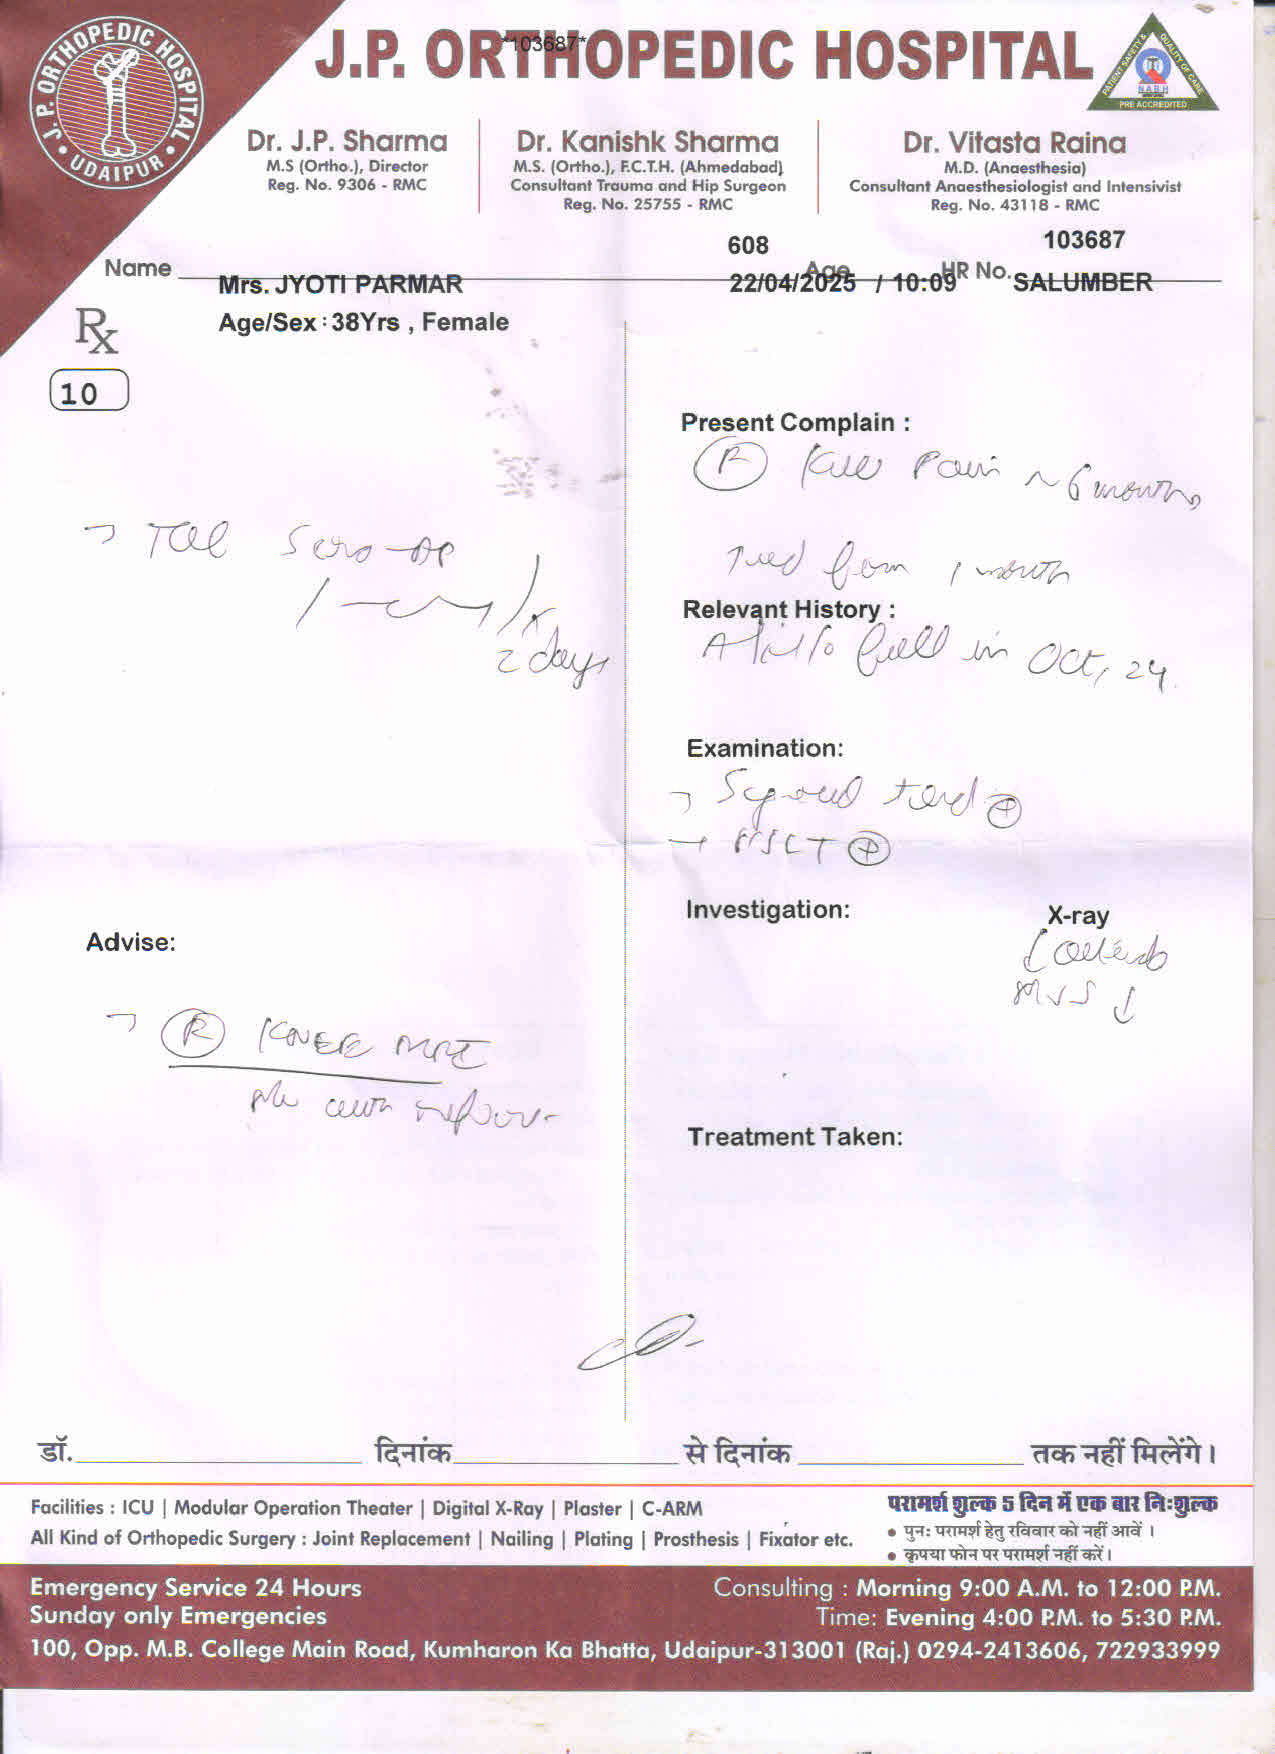 J.P. ORTHOPEDIC HOSPITAL
*103687*
J. P. ORTHOPEDIC HOSPITAL
• UDAIPUR •
PATIENT SAFETY & QUALITY OF CARE
NABH
PRE ACCREDITED
Dr. J.P. Sharma
M.S (Ortho.), Director
Reg. No. 9306 - RMC
Dr. Kanishk Sharma
M.S. (Ortho.), F.C.T.H. (Ahmedabad)
Consultant Trauma and Hip Surgeon
Reg. No. 25755 - RMC
Dr. Vitasta Raina
M.D. (Anaesthesia)
Consultant Anaesthesiologist and Intensivist
Reg. No. 43118 - RMC
608 103687
Name Mrs. JYOTI PARMAR Age 22/04/2025 / 10:09 HR No. SALUMBER
Age/Sex : 38Yrs , Female
Rx
10
Present Complain :
(R) Knee Pain ~ 6 months
from 1 month
Relevant History :
fall in Oct, 24
→ Sero
2 days
Examination:
Investigation: X-ray
Advise:
→ (R) KNEE MRI
Treatment Taken:
डॉ. दिनांक से दिनांक तक नहीं मिलेंगे।
Facilities : ICU | Modular Operation Theater | Digital X-Ray | Plaster | C-ARM
All Kind of Orthopedic Surgery : Joint Replacement | Nailing | Plating | Prosthesis | Fixator etc.
परामर्श शुल्क 5 दिन में एक बार निःशुल्क
• पुनः परामर्श हेतु रविवार को नहीं आवें ।
• कृपया फोन पर परामर्श नहीं करें।
Emergency Service 24 Hours
Sunday only Emergencies
Consulting : Morning 9:00 A.M. to 12:00 P.M.
Time: Evening 4:00 P.M. to 5:30 P.M.
100, Opp. M.B. College Main Road, Kumharon Ka Bhatta, Udaipur-313001 (Raj.) 0294-2413606, 722933999